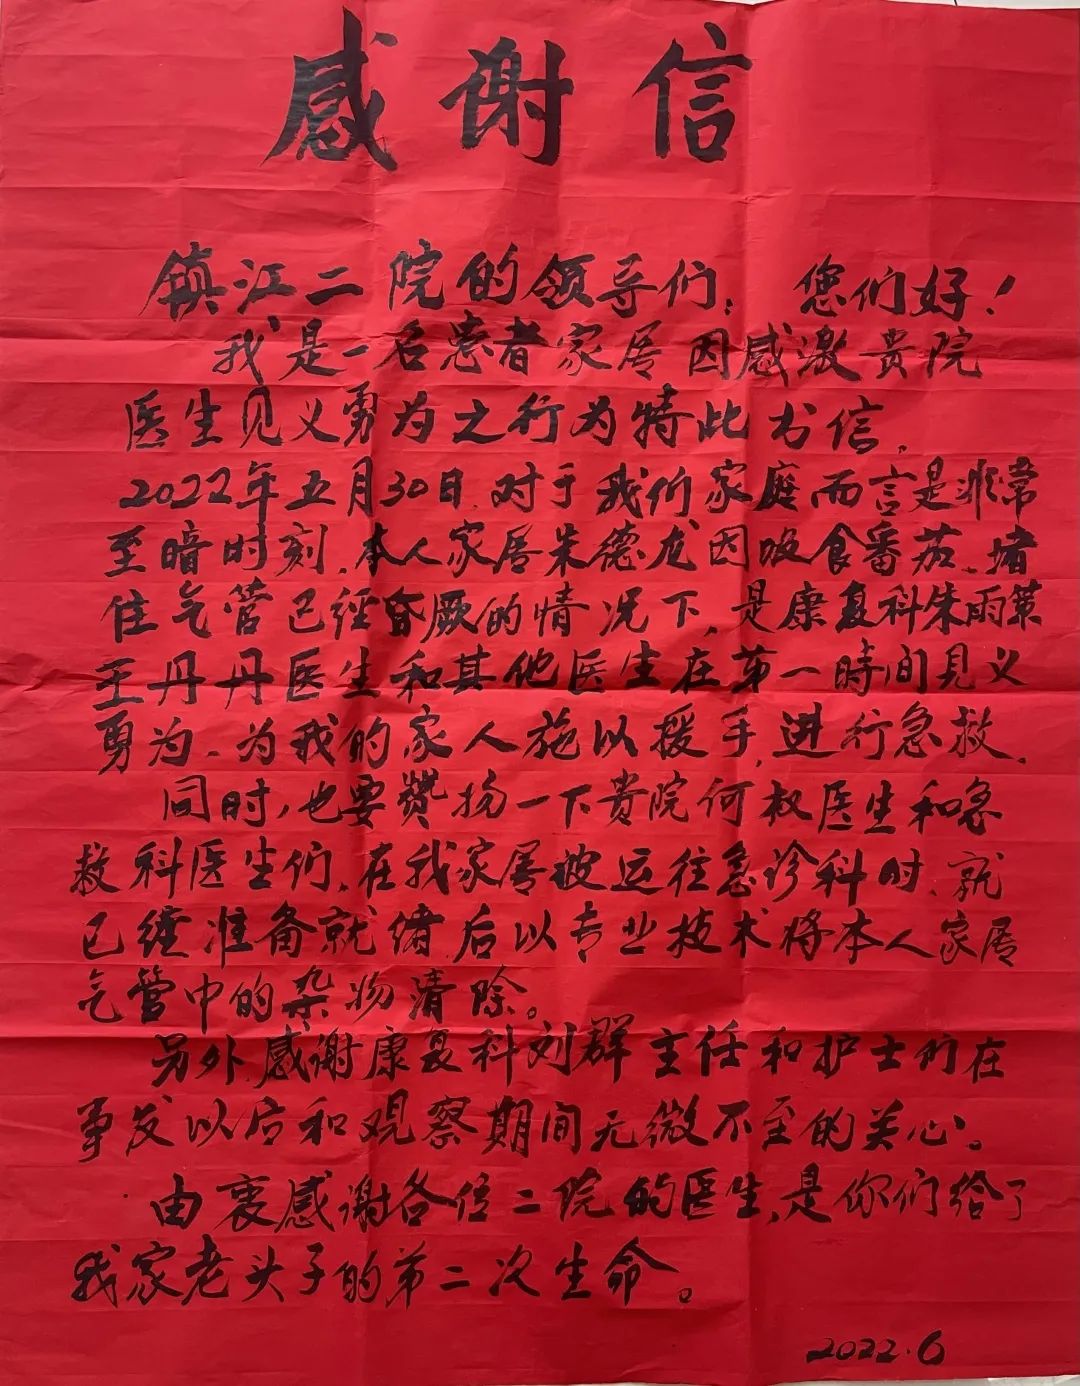 感谢信
镇江二院的领导们：您们好！
我是一名患者家居因感激贵院
医生见义勇为之行为特此书信，
2022年五月30日，对于我们家庭而言是非常
至暗时刻，本人家居朱德龙因吸食番茄，堵
住气管已经昏厥的情况下，是康复科朱雨
王丹丹医生和其他医生在第一時間見义
勇为、为我的家人施以援手，进行急救，
同时，也要赞扬一下贵院何权医生和急
救科医生们，在我家居被运往急诊科时，就
已经准备就绪，后以专业技术将本人家居
气管中的杂物清除。
另外，感谢康复科刘群主任和护士们在
事发以后和观察期间无微不至的关心。
由衷感谢各位二院的医生，是你们给了
我家老头子的第二次生命。
2022.6